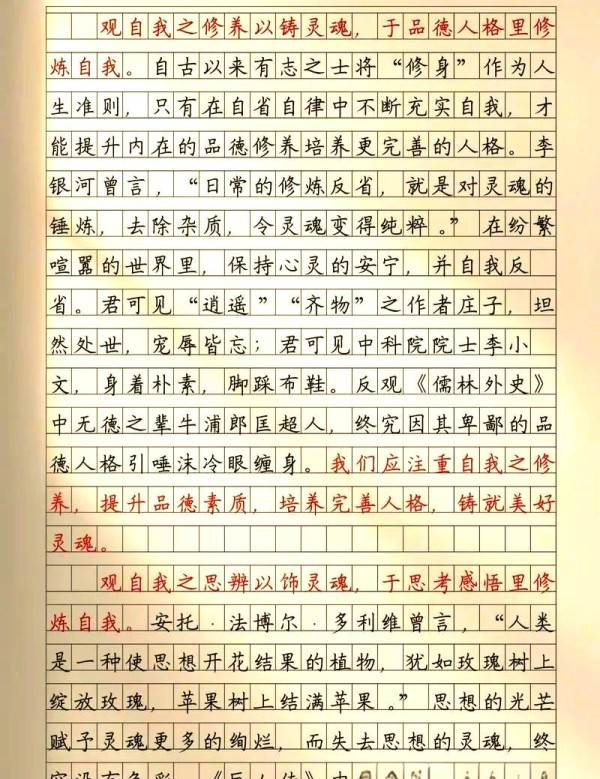 观自我之修养以铸灵魂，于品德人格里修
炼自我。自古以来有志之士将“修身”作为人
生准则，只有在自省自律中不断充实自我，才
能提升内在的品德修养培养更完善的人格。李
银河曾言，“日常的修炼反省，就是对灵魂的
锤炼，去除杂质，令灵魂变得纯粹。”在纷繁
喧嚣的世界里，保持心灵的安宁，并自我反
省。君可见“逍遥”“齐物”之作者庄子，坦
然处世，宠辱皆忘；君可见中科院院士李小
文，身着朴素，脚踩布鞋。反观《儒林外史》
中无德之辈牛浦郎匡超人，终究因其卑鄙的品
德人格引唾沫冷眼缠身。我们应注重自我之修
养，提升品德素质，培养完善人格，铸就美好
灵魂。
观自我之思辨以饰灵魂，于思考感悟里修
炼自我。安托·法博尔·多利维曾言，“人类
是一种使思想开花结果的植物，犹如玫瑰树上
绽放玫瑰，苹果树上结满苹果。”思想的光芒
赋予灵魂更多的绚烂，而失去思想的灵魂，终